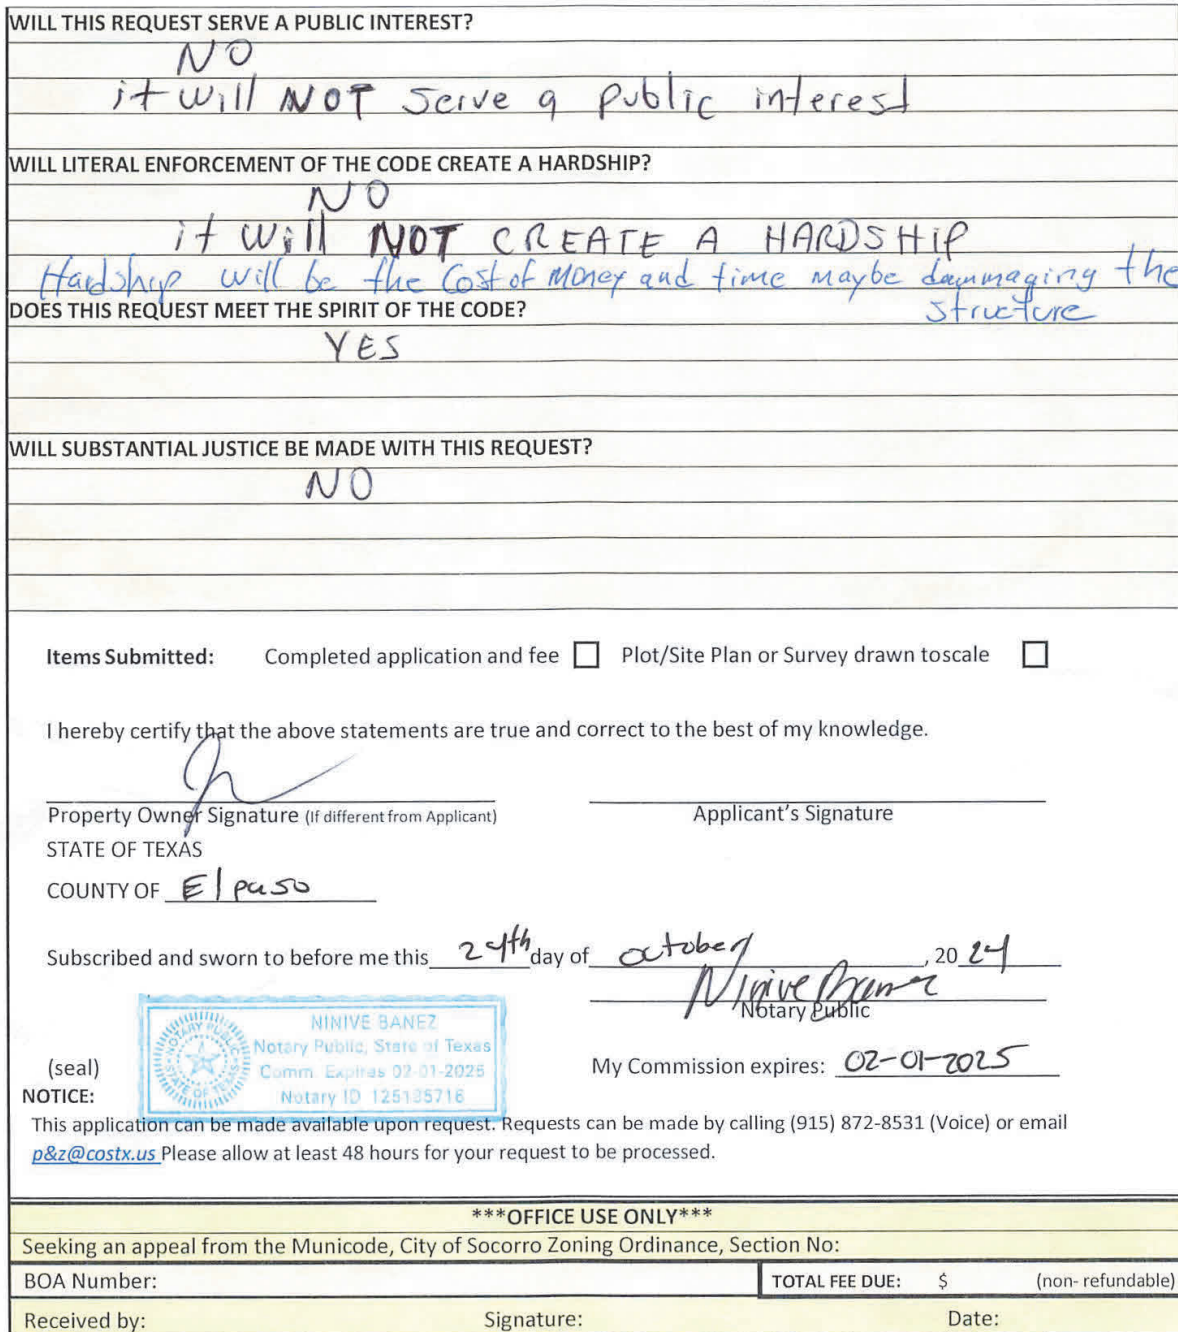 WILL THIS REQUEST SERVE A PUBLIC INTEREST?
NO
it will NOT Serve a public interest
WILL LITERAL ENFORCEMENT OF THE CODE CREATE A HARDSHIP?
NO
it will NOT CREATE A HARDSHIP
Hardship will be the Cost of Money and time maybe dammaging the
structure
DOES THIS REQUEST MEET THE SPIRIT OF THE CODE?
YES
WILL SUBSTANTIAL JUSTICE BE MADE WITH THIS REQUEST?
NO
Items Submitted: Completed application and fee Plot/Site Plan or Survey drawn toscale
I hereby certify that the above statements are true and correct to the best of my knowledge.
Property Owner Signature (If different from Applicant) Applicant's Signature
STATE OF TEXAS
COUNTY OF El paso
Subscribed and sworn to before me this 24th day of october, 2024
Notary Public
NINIVE BANEZ
Notary Public, State of Texas
Comm. Expires 02-01-2025
Notary ID 125135716
(seal) My Commission expires: 02-01-2025
NOTICE:
This application can be made available upon request. Requests can be made by calling (915) 872-8531 (Voice) or email
p&z@costx.us Please allow at least 48 hours for your request to be processed.
***OFFICE USE ONLY***
Seeking an appeal from the Municode, City of Socorro Zoning Ordinance, Section No:
BOA Number: TOTAL FEE DUE: $ (non- refundable)
Received by: Signature: Date: